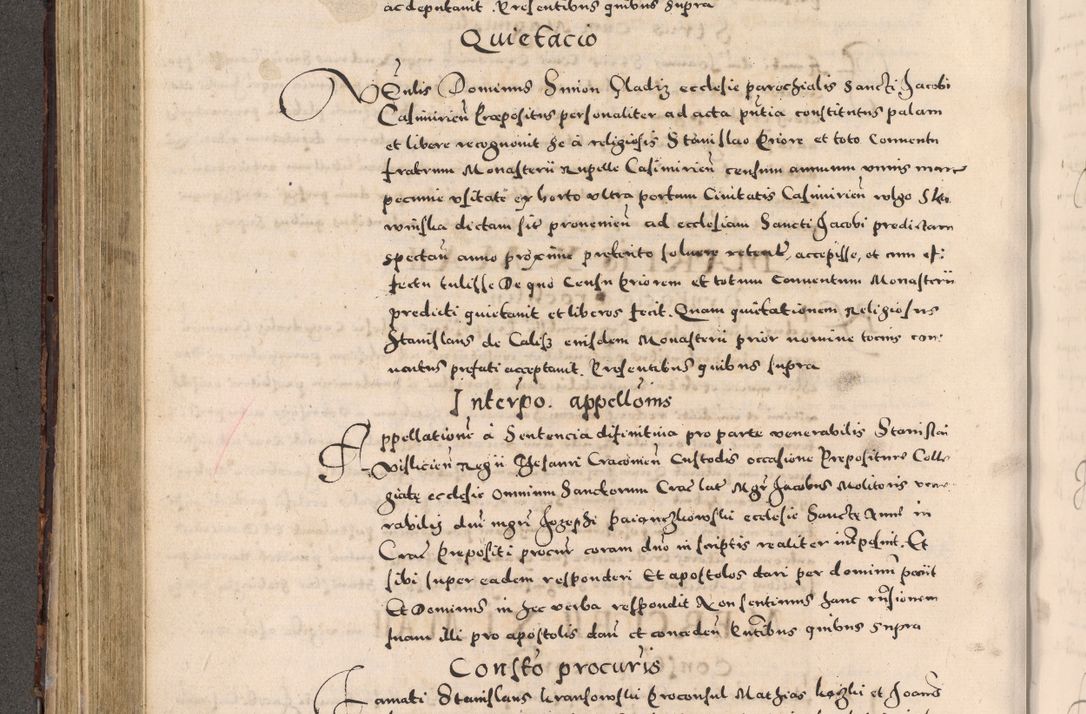 ac deputavit. Presentibus quibus supra
Quietacio
Nobilis Dominus Simon Gladisz ecclesie parochialis Sancti Jacobi
Casimirien Praepositus personaliter ad acta pntia constitutus palam
et libere recognovit se a religiosis Stanislao Priore et toto Conventu
fratrum Monasterii Rupelle Casimirien censum annuum unius marce
pecunie usitate ex horto ultra portam Civitatis Casimirien vulgo
dictam sit provenien ad ecclesiam Sancti Jacobi predictam
spectan anno proxime preterito solvere retent, accepisse, et cum ef:
fectu tulisse De quo Censu Priorem et totum Conventum Monasterii
predicti quietavit et liberos fecit. Quam quietationem Religiosus
Stanislaus de Calisz eiusdem Monasterii prior nomine tocius con:
ventus prefati acceptavit. Presentibus quibus supra
Interpo. appellonis
Appellationem a Sentencia difinitiva pro parte venerabilis Stanislai
Vislicien Regii Thesauri Cracovien Custodis occasione Prepositure Colle
giate ecclesie Omnium Sanctorum Crac lat Mgr Jacobus Molitoris vene
rabilis dni mgri Josephi ecclesie Sancte Anne in
Crac Prepositi procur coram dno in scriptis realiter intposuit. Et
sibi super eadem responderi Et apostolos dari per dominum petiit
Et Dominus in hec verba respondit Non sentimus hanc rnsionem
suam illi pro apostolis dari et conceden Pntibus quibus supra
Consto procuris
Famati Stanislaus Proconsul Mathias et Joannes